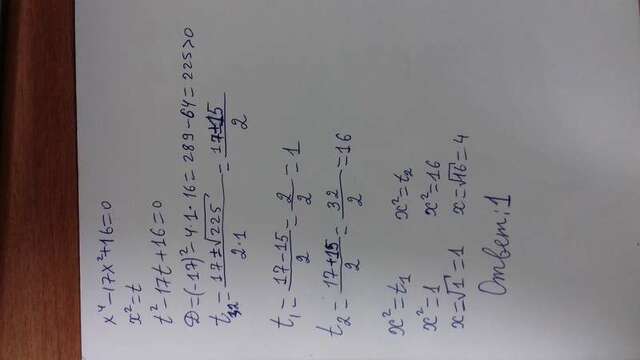 x⁴-17x²+16=0
x²=t
t²-17t+16=0
D=(-17)²-4·1·16=289-64=225>0
t₁,₂=(17±√225)/(2·1)=(17±15)/2
t₁=(17-15)/2=2/2=1
t₂=(17+15)/2=32/2=16
x²=t₁ x²=t₂
x²=1 x²=16
x=√1=1 x=√16=4
Ответ:1